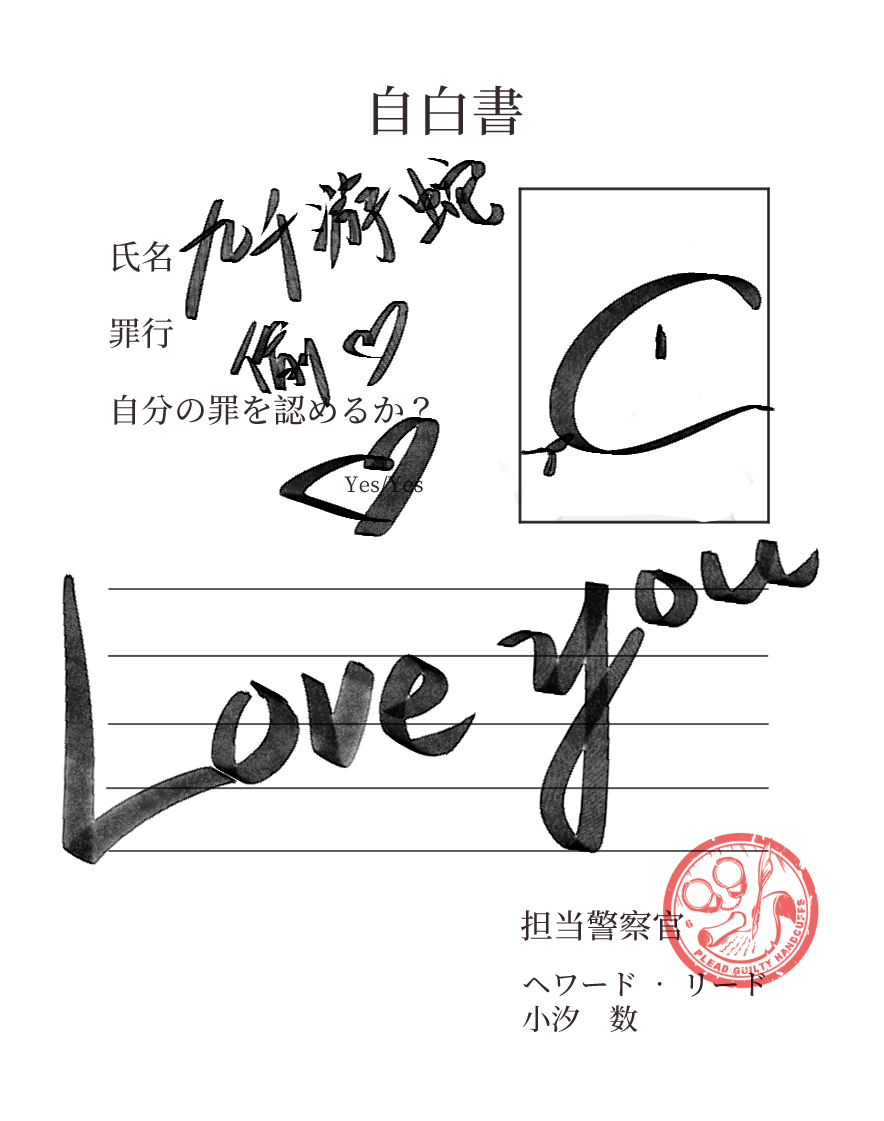 自白書
氏名 九千
罪行 偷♡
自分の罪を認めるか？
Yes/Yes
Love you
担当警察官
ヘワード · リード
小汐　数
PLEAD GUILTY HANDCUFFS